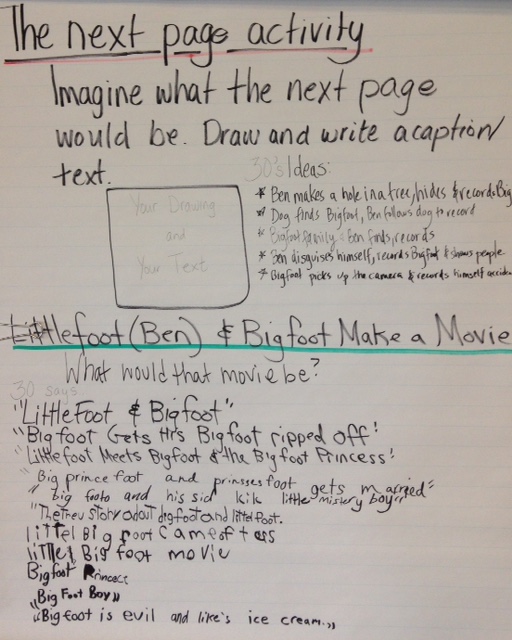 The next page activity
Imagine what the next page
would be. Draw and write a caption/
text.
30's Ideas:
Your Drawing
and
Your Text
* Ben makes a hole in a tree, hides & records Big
* Dog finds Bigfoot, Ben follows dog to record
* Bigfoot family & Ben finds, records
* Ben disguises himself, records Bigfoot & shows people
* Bigfoot picks up the camera & records himself accide
Littlefoot (Ben) & Bigfoot Make a Movie
What would that movie be?
30 says
"Little Foot & Bigfoot"
"Bigfoot Gets His Bigfoot ripped off!
"Littlefoot Meets Bigfoot & the Bigfoot Princess!
"Big prince foot and prinssesfoot gets married"
"big foots and his sid kik little mistery boy"
"The treu story adout digfoot and littel foot.
littel Big foot
little Big foot movie
Bigfoot Princect
"Big Foot Boy"
"Bigfoot is evil and like's ice cream."